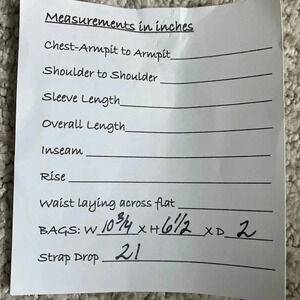 Measurements in inches
Chest-Armpit to Armpit
Shoulder to Shoulder
Sleeve Length
Overall Length
Inseam
Rise
Waist laying across flat
BAGS: W 10 3/4 X H 6 1/2 X D 2
Strap Drop 21